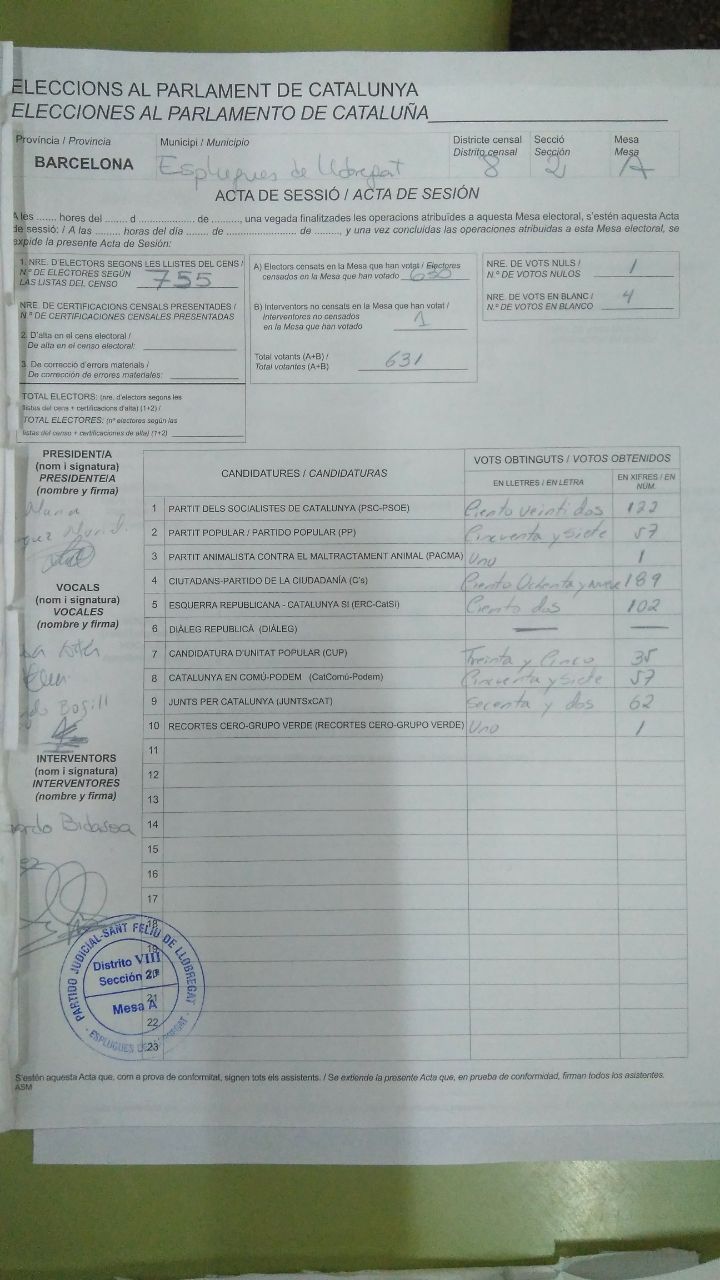 ELECCIONS AL PARLAMENT DE CATALUNYA
ELECCIONES AL PARLAMENTO DE CATALUÑA
Província / Provincia
BARCELONA
Municipi / Municipio
Esplugues de Llobregat
Districte censal
Distrito censal
8
Secció
Sección
2
Mesa
Mesa
A
ACTA DE SESSIÓ / ACTA DE SESIÓN
A les ....... hores del ....... d .................. de .........., una vegada finalitzades les operacions atribuïdes a aquesta Mesa electoral, s'estén aquesta Acta
de sessió: / A las ......... horas del día ....... de ....................... de ......, y una vez concluidas las operaciones atribuidas a esta Mesa electoral, se
expide la presente Acta de Sesión:
1. NRE. D'ELECTORS SEGONS LES LLISTES DEL CENS /
N.º DE ELECTORES SEGÚN
LAS LISTAS DEL CENSO 755
NRE. DE CERTIFICACIONS CENSALS PRESENTADES /
N.º DE CERTIFICACIONES CENSALES PRESENTADAS
2. D'alta en el cens electoral /
De alta en el censo electoral:
3. De correcció d'errors materials /
De corrección de errores materiales:
TOTAL ELECTORS: (nre. d'electors segons les
llistes del cens + certificacions d'alta) (1+2) /
TOTAL ELECTORES: (nº electores según las
listas del censo + certificaciones de alta) (1+2)
A) Electors censats en la Mesa que han votat / Electores
censados en la Mesa que han votado 630
B) Interventors no censats en la Mesa que han votat /
Interventores no censados
en la Mesa que han votado 1
Total votants (A+B) /
Total votantes (A+B) 631
NRE. DE VOTS NULS /
N.º DE VOTOS NULOS 1
NRE. DE VOTS EN BLANC /
N.º DE VOTOS EN BLANCO 4
PRESIDENT/A
(nom i signatura)
PRESIDENTE/A
(nombre y firma)
VOCALS
(nom i signatura)
VOCALES
(nombre y firma)
INTERVENTORS
(nom i signatura)
INTERVENTORES
(nombre y firma)
Bidasoa
CANDIDATURES / CANDIDATURAS
VOTS OBTINGUTS / VOTOS OBTENIDOS
EN LLETRES / EN LETRA
EN XIFRES / EN
NÚM.
1 PARTIT DELS SOCIALISTES DE CATALUNYA (PSC-PSOE) Ciento veintidos 122
2 PARTIT POPULAR / PARTIDO POPULAR (PP) Cincuenta y siete 57
3 PARTIT ANIMALISTA CONTRA EL MALTRACTAMENT ANIMAL (PACMA) Uno 1
4 CIUTADANS-PARTIDO DE LA CIUDADANÍA (C's) Ciento Ochenta y nueve 189
5 ESQUERRA REPUBLICANA - CATALUNYA SÍ (ERC-CatSí) Ciento dos 102
6 DIÀLEG REPUBLICÀ (DIÀLEG) — —
7 CANDIDATURA D'UNITAT POPULAR (CUP) Treinta y Cinco 35
8 CATALUNYA EN COMÚ-PODEM (CatComú-Podem) Cincuenta y siete 57
9 JUNTS PER CATALUNYA (JUNTSxCAT) Secenta y dos 62
10 RECORTES CERO-GRUPO VERDE (RECORTES CERO-GRUPO VERDE) Uno 1
11
12
13
14
15
16
17
18
19
20
21
22
23
PARTIDO JUDICIAL-SANT FELIU DE LLOBREGAT
Distrito VIII
Sección 2ª
Mesa A
S'estén aquesta Acta que, com a prova de conformitat, signen tots els assistents. / Se extiende la presente Acta que, en prueba de conformidad, firman todos los asistentes.
ASM